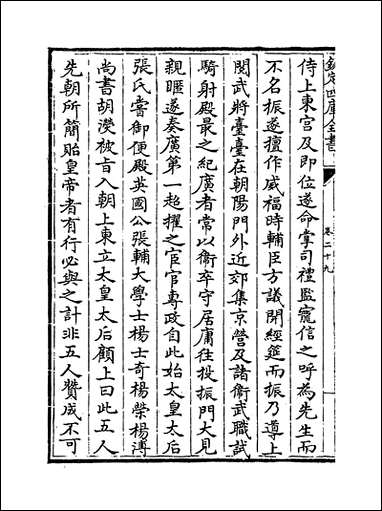 欽定四庫全書
卷二十九
侍上東宫及即位遂命掌司禮監寵信之呼為先生而
不名振遂擅作威福時輔臣方議開經筵而振乃導上
閲武將臺臺在朝陽門外近郊集京營及諸衛武職試
騎射殿最之紀廣者常以衛卒守居庸往投振門大見
親暱遂奏廣第一超擢之宦官專政自此始太皇太后
張氏嘗御便殿英國公張輔大學士楊士奇楊榮楊溥
尚書胡濙被㫖入朝上東立太皇太后顧上曰此五人
先朝所簡貽皇帝者有行必與之計非五人贊成不可